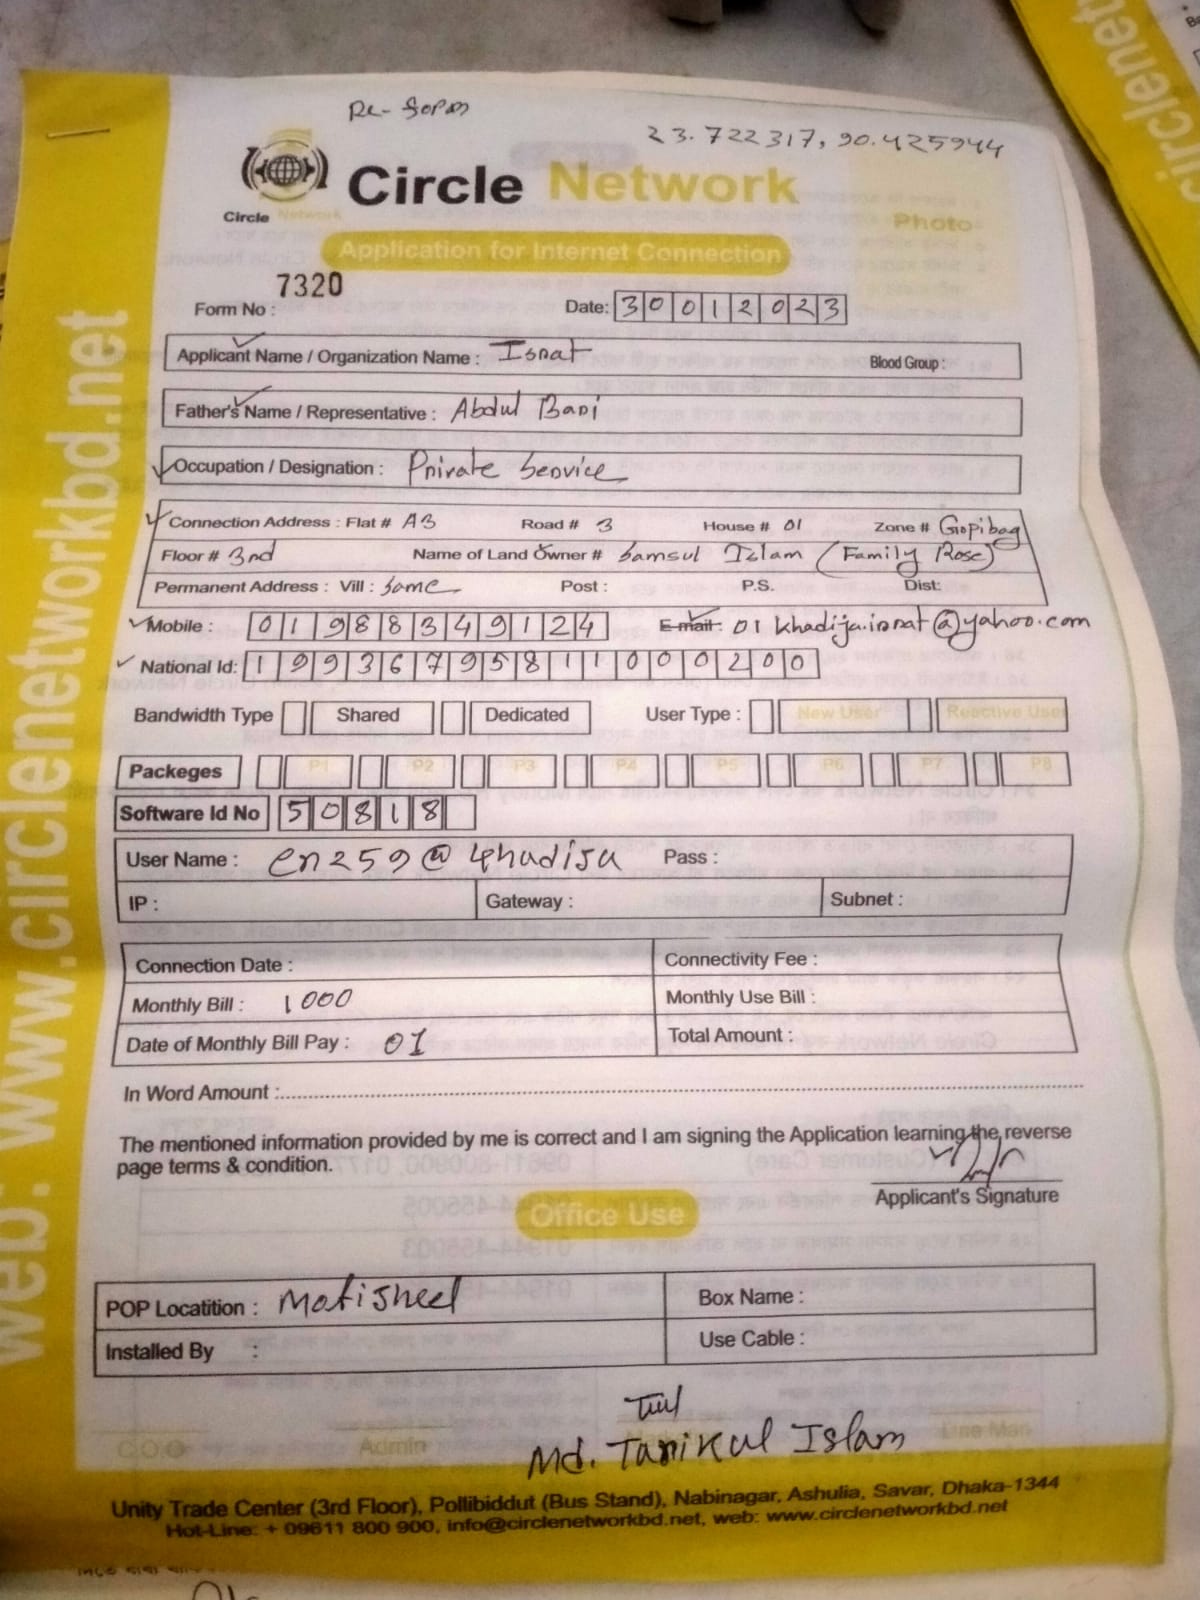 Re-form
23.722317, 90.425944
Circle Network
Circle Network
Photo
Application for Internet Connection
7320
Form No :
Date: 30012023
Applicant Name / Organization Name : Isnat
Blood Group :
Father's Name / Representative : Abdul Bari
Occupation / Designation : Private Service
Connection Address : Flat # A3 Road # 3 House # 01 Zone # Gopibag
Floor # 3rd Name of Land Owner # Samsul Islam (Family Rose)
Permanent Address : Vill : Same Post : P.S. Dist:
Mobile : 01988349124 E-mail: 01 khadija.isnat@yahoo.com
National Id: 19936795811000200
Bandwidth Type Shared Dedicated User Type : New User Reactive User
Packeges P1 P2 P3 P4 P5 P6 P7 P8
Software Id No 50818
User Name : cn259@khadija Pass :
IP : Gateway : Subnet :
Connection Date : Connectivity Fee :
Monthly Bill : 1000 Monthly Use Bill :
Date of Monthly Bill Pay : 01 Total Amount :
In Word Amount :
The mentioned information provided by me is correct and I am signing the Application learning the reverse
page terms & condition.
Applicant's Signature
Office Use
POP Locatition : Motijheel Box Name :
Installed By : Use Cable :
Md. Tarikul Islam
C O O Admin Line Man
Unity Trade Center (3rd Floor), Pollibiddut (Bus Stand), Nabinagar, Ashulia, Savar, Dhaka-1344
Hot-Line: + 09611 800 900, info@circlenetworkbd.net, web: www.circlenetworkbd.net
web: www.circlenetworkbd.net
circlenet